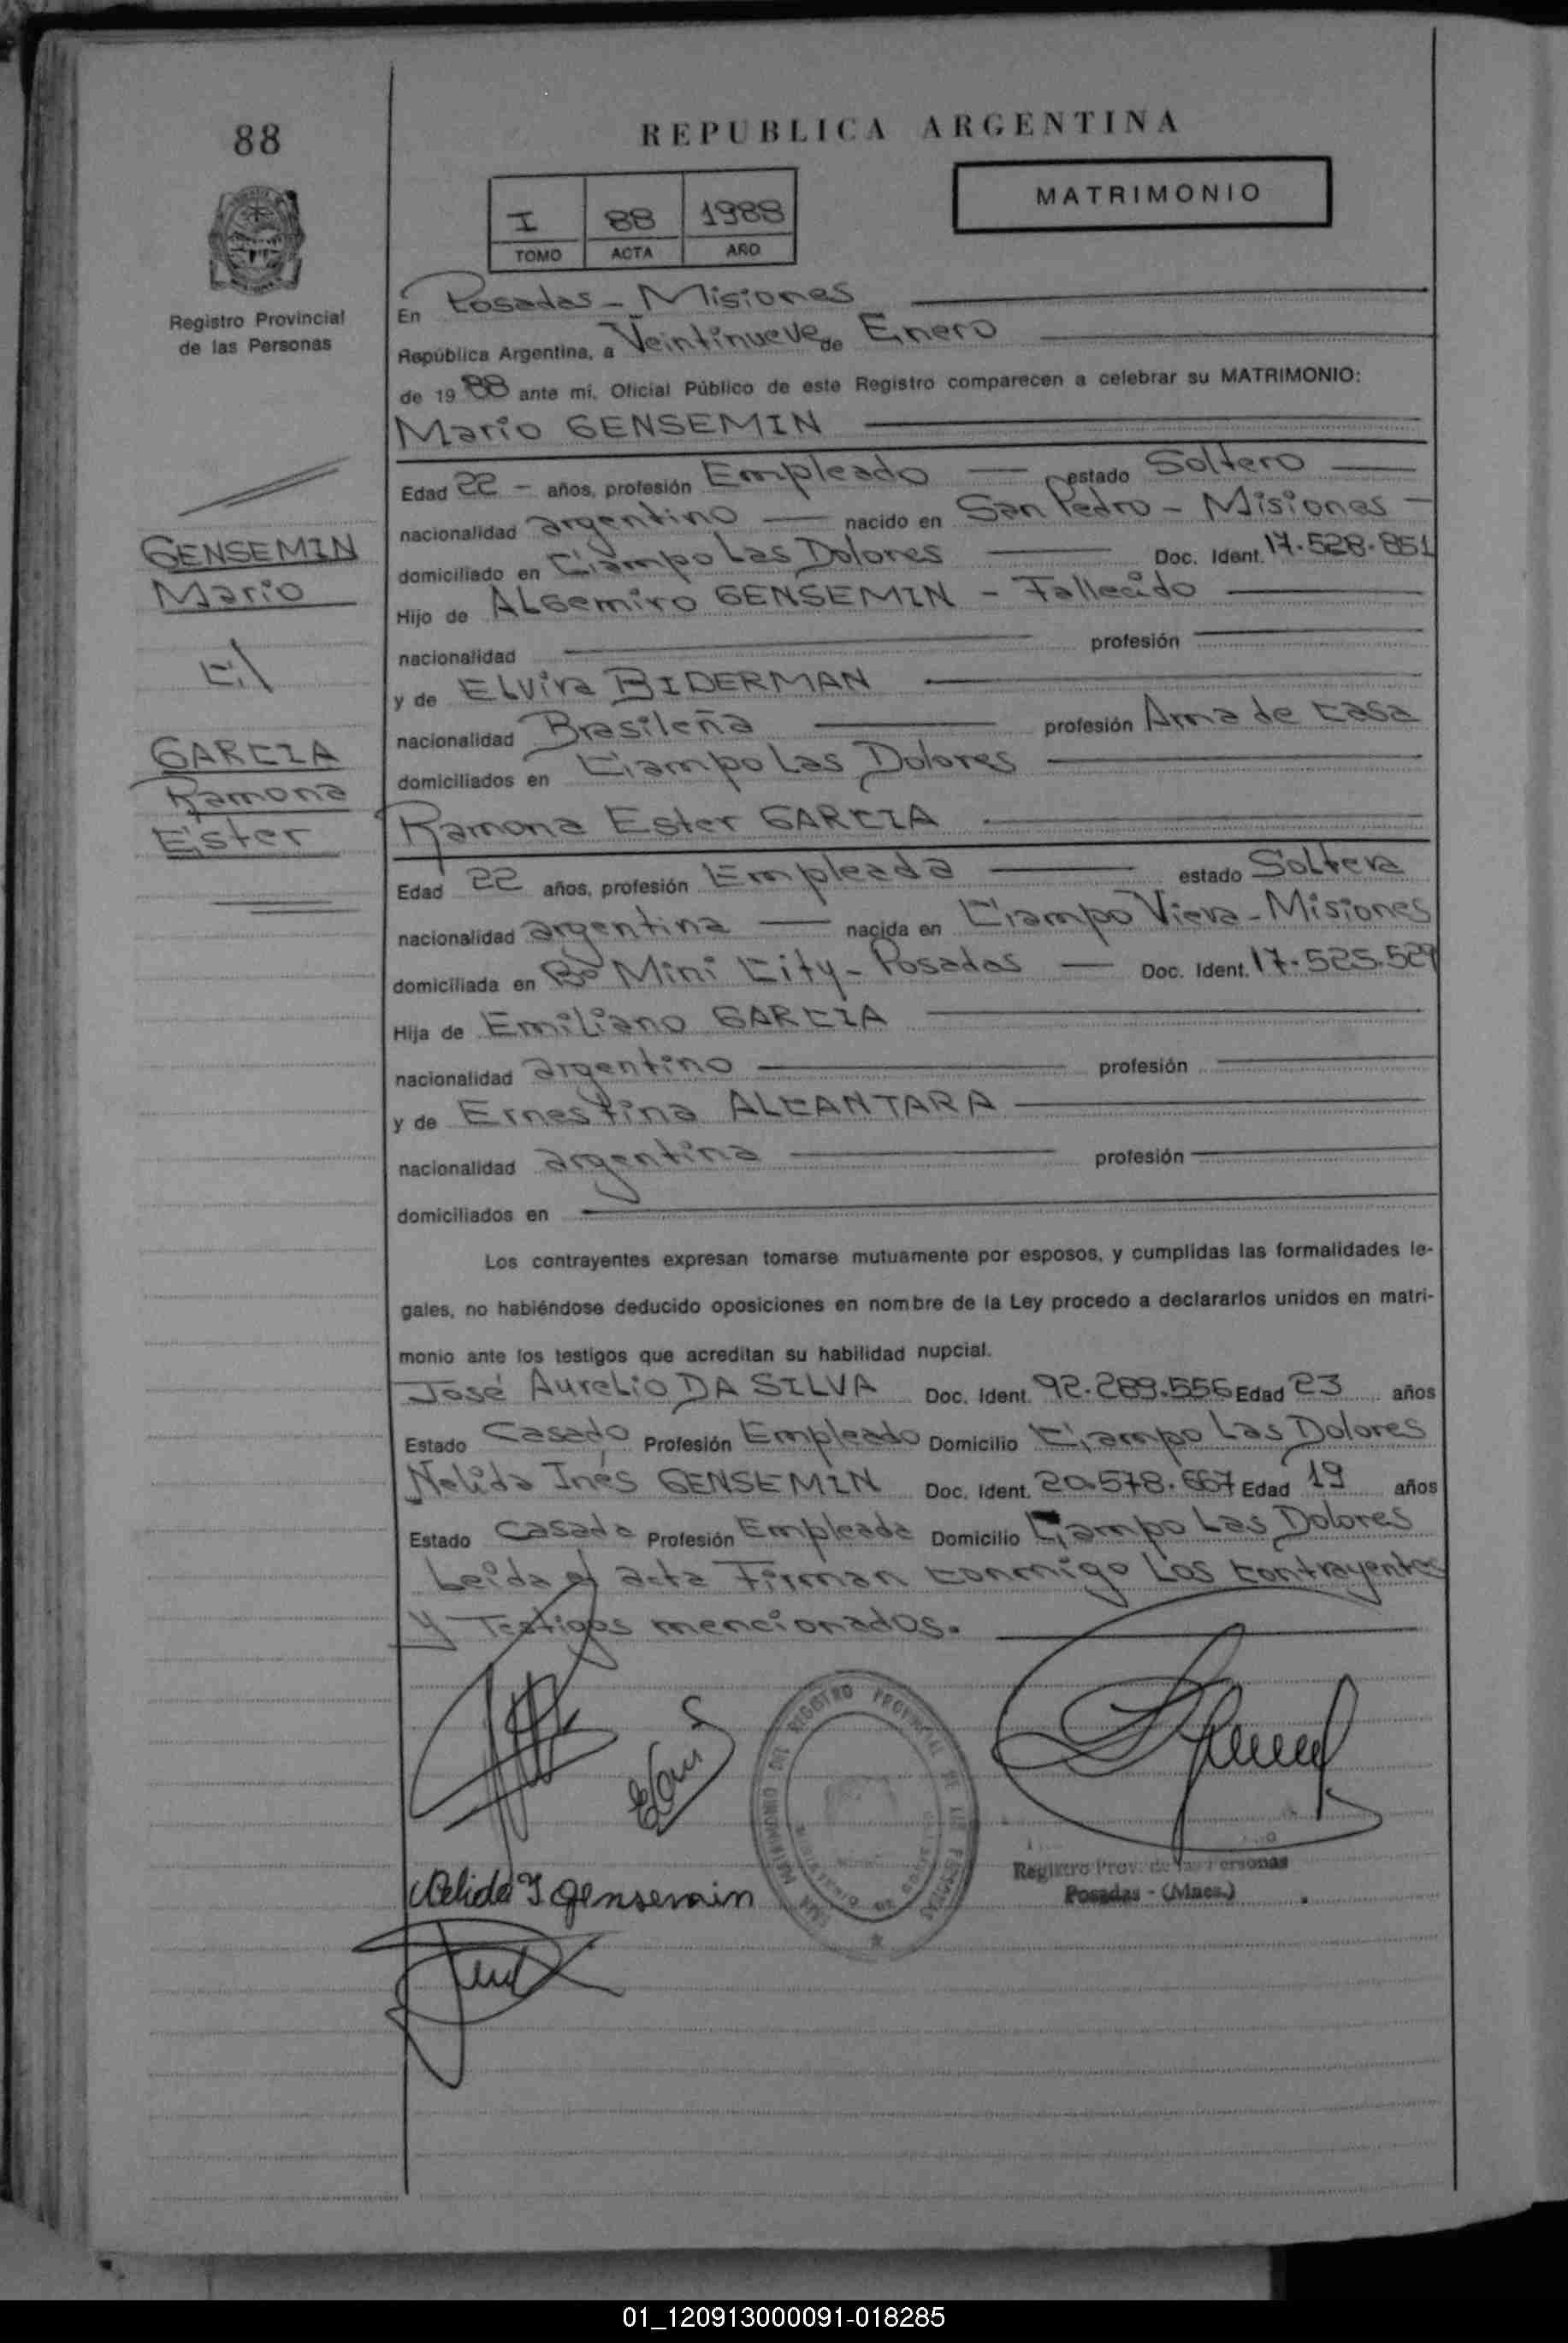 88
REPUBLICA ARGENTINA
MATRIMONIO
I 88 1988
TOMO ACTA AÑO
Registro Provincial
de las Personas
En Posadas - Misiones
República Argentina, a Veintinueve de Enero
de 1988 ante mí, Oficial Público de este Registro comparecen a celebrar su MATRIMONIO:
Mario GENSEMIN
Edad 22 - años, profesión Empleado — estado Soltero —
nacionalidad argentino — nacido en San Pedro - Misiones -
domiciliado en Campo Las Dolores — Doc. Ident. 17.528.851
Hijo de ALGemiro GENSEMIN - Fallecido
nacionalidad — profesión
y de ELvira BIDERMAN
nacionalidad Brasileña — profesión Ama de casa
domiciliados en Campo Las Dolores
Ramona Ester GARCIA
Edad 22 años, profesión Empleada — estado Soltera
nacionalidad argentina — nacida en Campo Viera - Misiones
domiciliada en Bº Mini City - Posadas — Doc. Ident. 17.525.529
Hija de Emiliano GARCIA
nacionalidad argentino — profesión
y de Ernestina ALCANTARA
nacionalidad argentina — profesión
domiciliados en
GENSEMIN
Mario
C/
GARCIA
Ramona
Ester
Los contrayentes expresan tomarse mutuamente por esposos, y cumplidas las formalidades le-
gales, no habiéndose deducido oposiciones en nombre de la Ley procedo a declararlos unidos en matri-
monio ante los testigos que acreditan su habilidad nupcial.
José Aurelio DA SILVA Doc. Ident. 92.289.556 Edad 23 años
Estado Casado Profesión Empleado Domicilio Campo Las Dolores
Nelida Inés GENSEMIN Doc. Ident. 20.578.667 Edad 19 años
Estado Casada Profesión Empleada Domicilio Campo Las Dolores
Leida el acta Firman conmigo Los contrayentes
y Testigos mencionados.
REGISTRO PROVINCIAL DE LAS PERSONAS
Registro Prov. de las Personas
Posadas - (Mnes.)
Nelida I gensemin
01_120913000091-018285